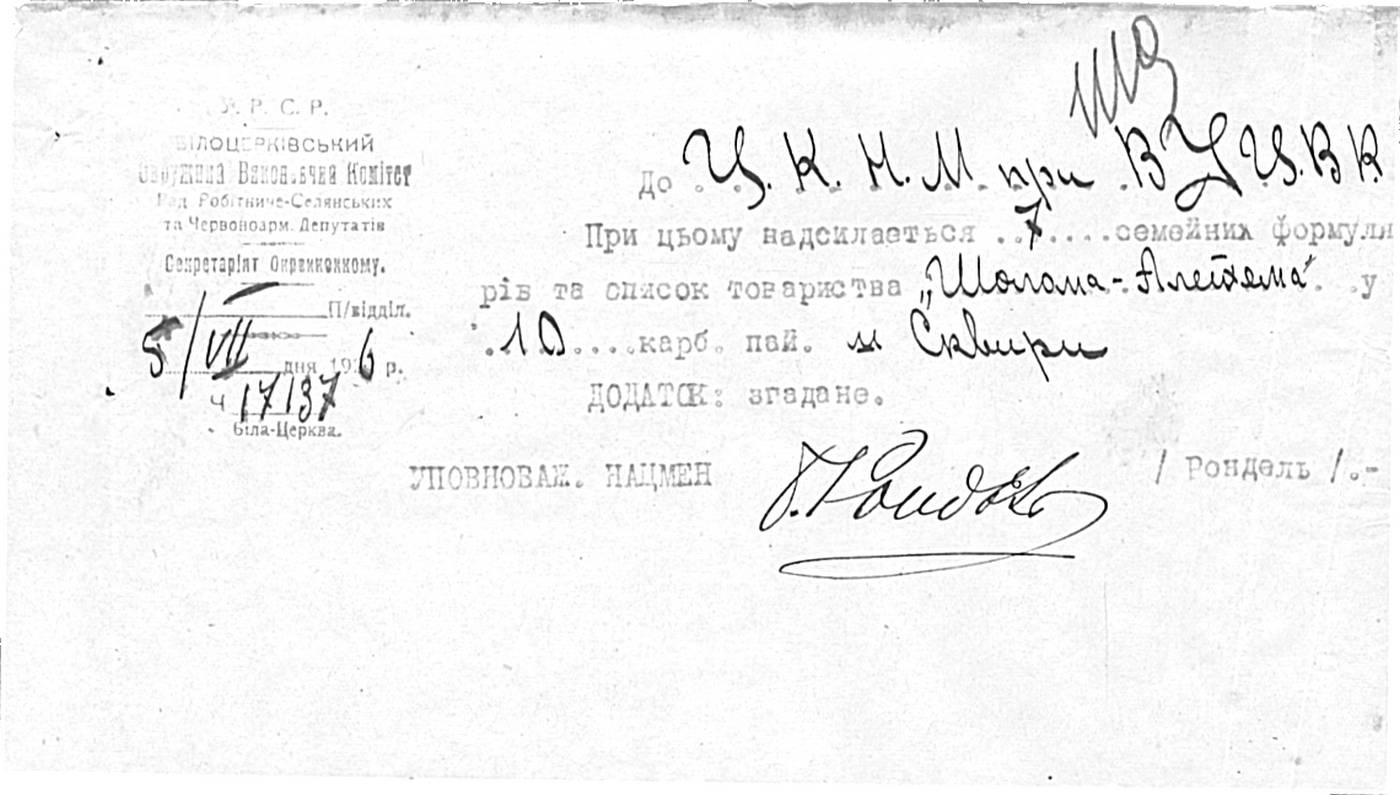 У. Р. С. Р.
БІЛОЦЕРКІВСЬКИЙ
Окружний Виконавчий Комітет
Рад Робітниче-Селянських
та Червоноарм. Депутатів
Секретаріят Окрвиконкому.
П/відділ.
5/VII дня 1926 р.
Ч 17137
Біла-Церква.
До Ц. К. Н. М при ВУЦ.В.К.
При цьому надсилається ..7....семейних формуля
рів та список товариства „Шолома-Алейхема" . .у
.10....карб. пай. м Сквири
ДОДАТОК: згадане.
УПОВНОВАЖ. НАЦМЕН / Рондель /.-